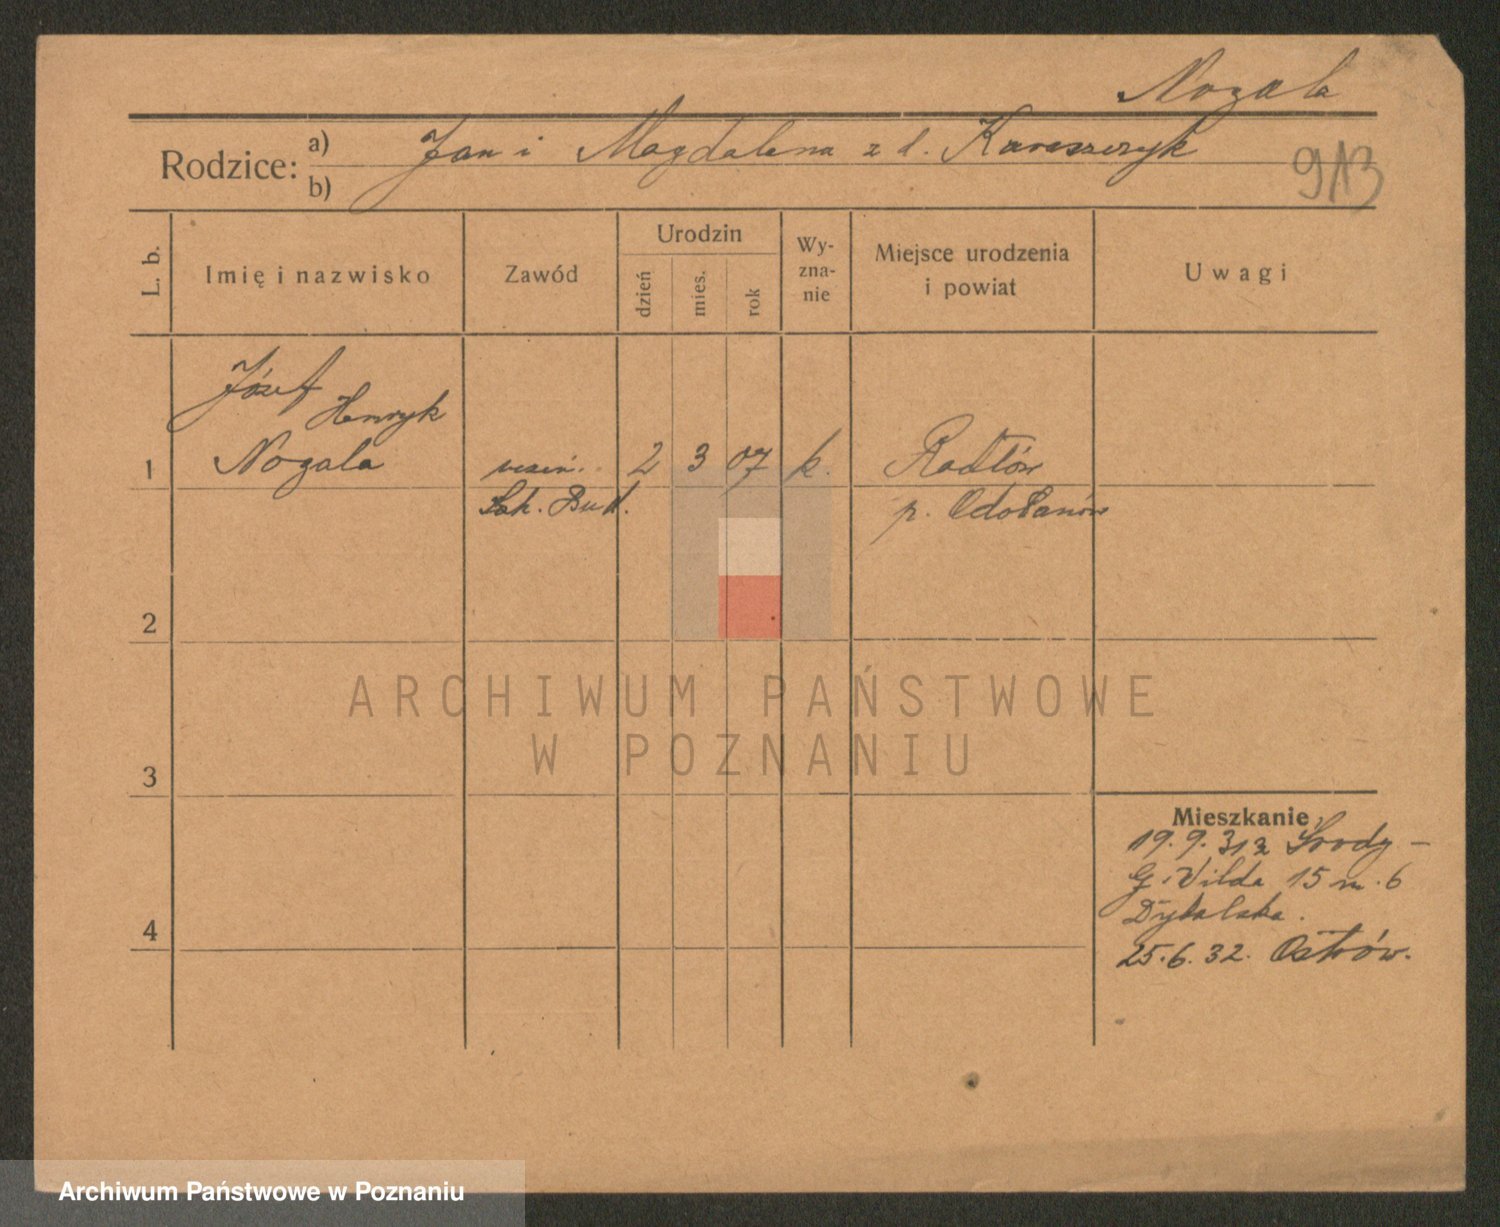 Nogala
Rodzice: a) Jan i Magdalena z d.
b)
913
L. b.
Imię i nazwisko
Zawód
Urodzin
dzień
mies.
rok
Wy-
zna-
nie
Miejsce urodzenia
i powiat
Uwagi
Józef
Henryk
1 Nogala 2 3 07 k. Radłów
Bud. p. Odolanów
2
3
4
Mieszkanie
19. 9. 31 z Środy –
G. Wilda 15 m. 6
25. 6. 32. Ostrów.
ARCHIWUM PAŃSTWOWE
W POZNANIU
Archiwum Państwowe w Poznaniu